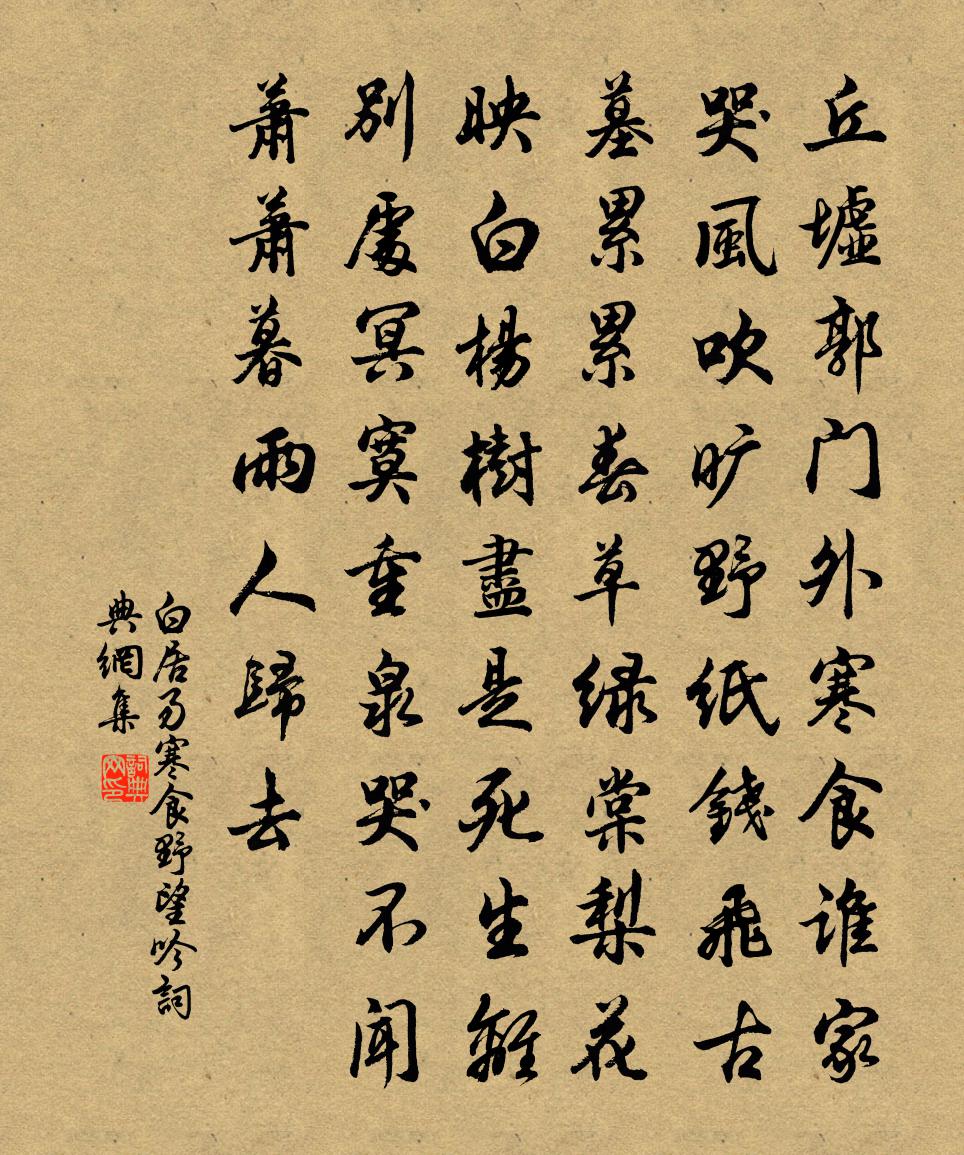 丘墟郭门外寒食谁家
哭風吹旷野纸錢飛古
墓累累春草绿棠梨花
映白楊樹盡是死生離
別處冥寞重泉哭不闻
蕭蕭暮雨人歸去
白居易寒食野望吟詞
典網集
詞典网印